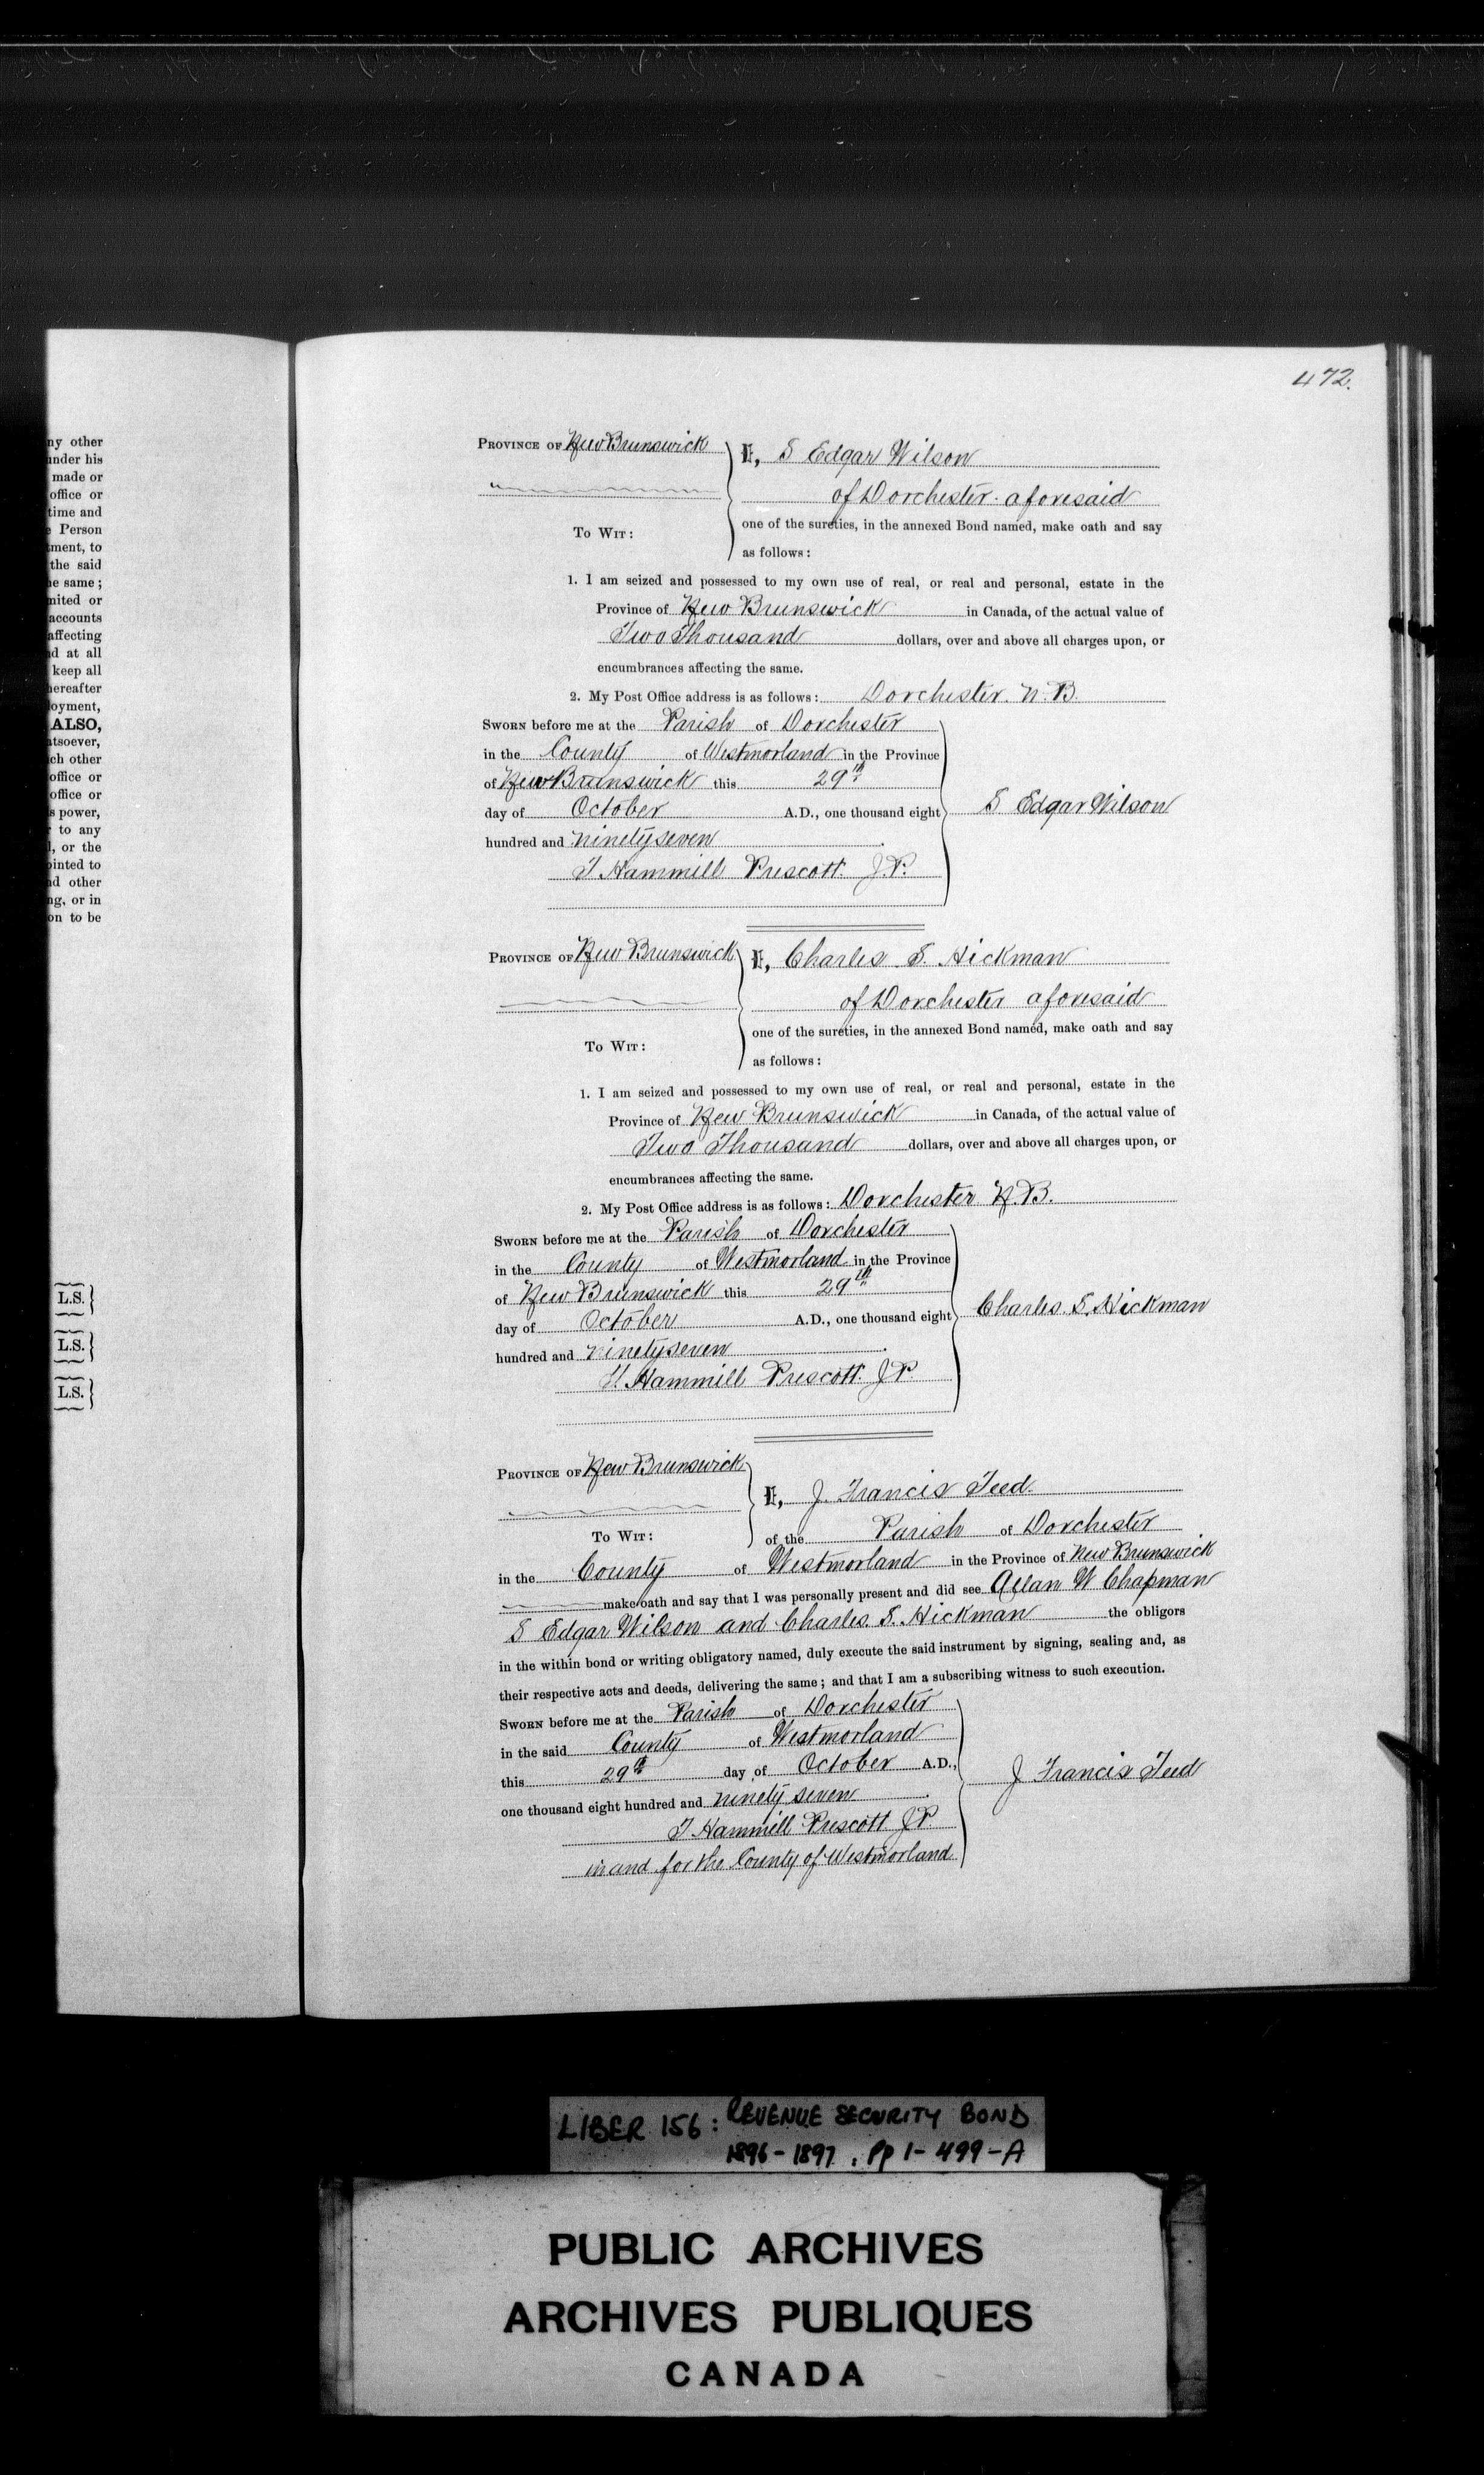 472.
ny other
under his
made or
office or
time and
e Person
tment, to
the said
he same ;
mited or
accounts
affecting
d at all
keep all
hereafter
loyment,
ALSO,
atsoever,
ch other
office or
office or
s power,
to any
l, or the
ointed to
nd other
ng, or in
on to be
L.S.
L.S.
L.S.
PROVINCE OF New Brunswick
I, S Edgar Wilson
of Dorchester aforesaid
TO WIT:
one of the sureties, in the annexed Bond named, make oath and say
as follows:
1. I am seized and possessed to my own use of real, or real and personal, estate in the
Province of New Brunswick in Canada, of the actual value of
Two Thousand dollars, over and above all charges upon, or
encumbrances affecting the same.
2. My Post Office address is as follows: Dorchester. N.B.
SWORN before me at the Parish of Dorchester
in the County of Westmorland in the Province
of New Brunswick this 29th
day of October A.D., one thousand eight
hundred and ninety seven.
S Edgar Wilson
T. Hammill Prescott. J.P.
PROVINCE OF New Brunswick
I, Charles S. Hickman
of Dorchester aforesaid
TO WIT:
one of the sureties, in the annexed Bond named, make oath and say
as follows:
1. I am seized and possessed to my own use of real, or real and personal, estate in the
Province of New Brunswick in Canada, of the actual value of
Two Thousand dollars, over and above all charges upon, or
encumbrances affecting the same.
2. My Post Office address is as follows: Dorchester N.B.
SWORN before me at the Parish of Dorchester
in the County of Westmorland in the Province
of New Brunswick this 29th
day of October A.D., one thousand eight
hundred and ninety seven.
Charles. S. Hickman
T. Hammill Prescott. J.P.
PROVINCE OF New Brunswick
I, J. Francis Teed.
TO WIT:
of the Parish of Dorchester
in the County of Westmorland in the Province of New Brunswick
make oath and say that I was personally present and did see Allan W Chapman
S Edgar Wilson and Charles. S. Hickman the obligors
in the within bond or writing obligatory named, duly execute the said instrument by signing, sealing and, as
their respective acts and deeds, delivering the same; and that I am a subscribing witness to such execution.
SWORN before me at the Parish of Dorchester
in the said County of Westmorland
this 29th day of October A.D.,
one thousand eight hundred and ninety seven.
J Francis Teed
T. Hammill Prescott J.P.
in and for the County of Westmorland
LIBER 156: REVENUE SECURITY BOND
1896-1897, Pp 1-499-A
PUBLIC ARCHIVES
ARCHIVES PUBLIQUES
CANADA